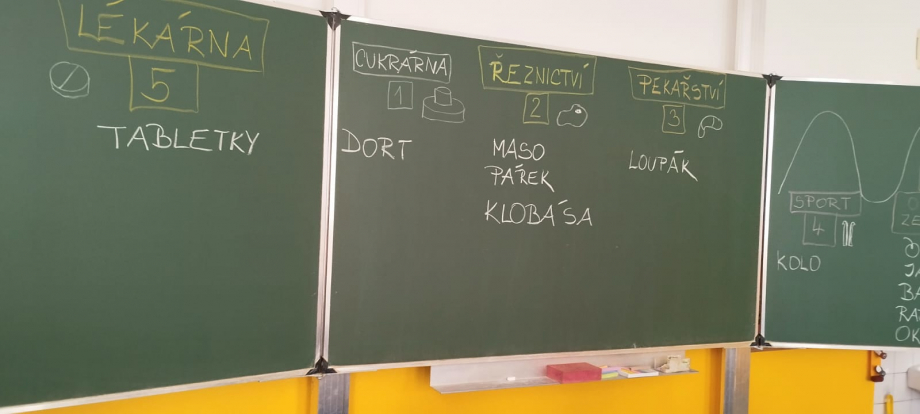 LÉKÁRNA
5
TABLETKY
CUKRÁRNA
1
DORT
ŘEZNICTVÍ
2
MASO
PÁREK
KLOBÁSA
PEKAŘSTVÍ
3
LOUPÁK
SPORT
4
KOLO